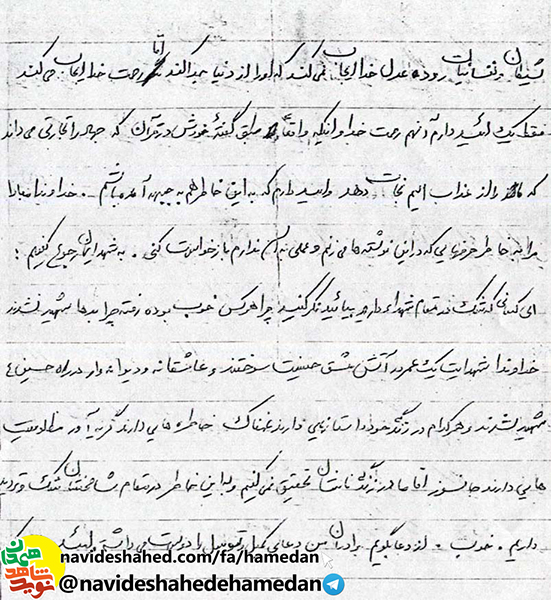 شیطان و نفسانیات رود و به عدل خدا ایمان نمی‌کند که او را از دنیا جدا کند اما رحمت خدا ایمان می‌کند
فقط یک امید دارم آنهم رحمت خداوند اینکه واقعاً طبق گفتهٔ خودش در قرآن که جهاد را تجارتی می‌داند
که ما را از عذاب الیم نجات دهد و امید دارم که به این خاطر هم به جبهه آمده باشم . خداوندا مبادا
مرا به خاطر حرفهایی که در این نوشته‌ها می‌زنم و عملی به آن ندارم بازخواست کنی . به شهدایمان رجوع کنیم :
ای کسانی که شک در مقام شهداء دارید بیائید فکر کنید چرا هر کس خوب بوده رفته چرا بدها شهید نشدند
خداوندا شهدایت یک عمر در آتش عشق حسینیت سوختند و عاشقانه و دیوانه‌وار در راه حسین ع
شهید شدند و هر کدام در زندگی خود داستانهایی دارند غمناک خاطره‌هایی دارند گریه‌آور مظلومیت
هایی دارند جانسوز اما ما در زندگیشان تحقیق نمی‌کنیم و به این خاطر در مقام شامخشان شک و تردید
داریم . خوب . از دعا بگویم برادران من دعای کمیل و توسل را دوست می‌داشتم امید
navideshahed.com/fa/hamedan
@navideshahedehamedan
نوید شاهد همدان